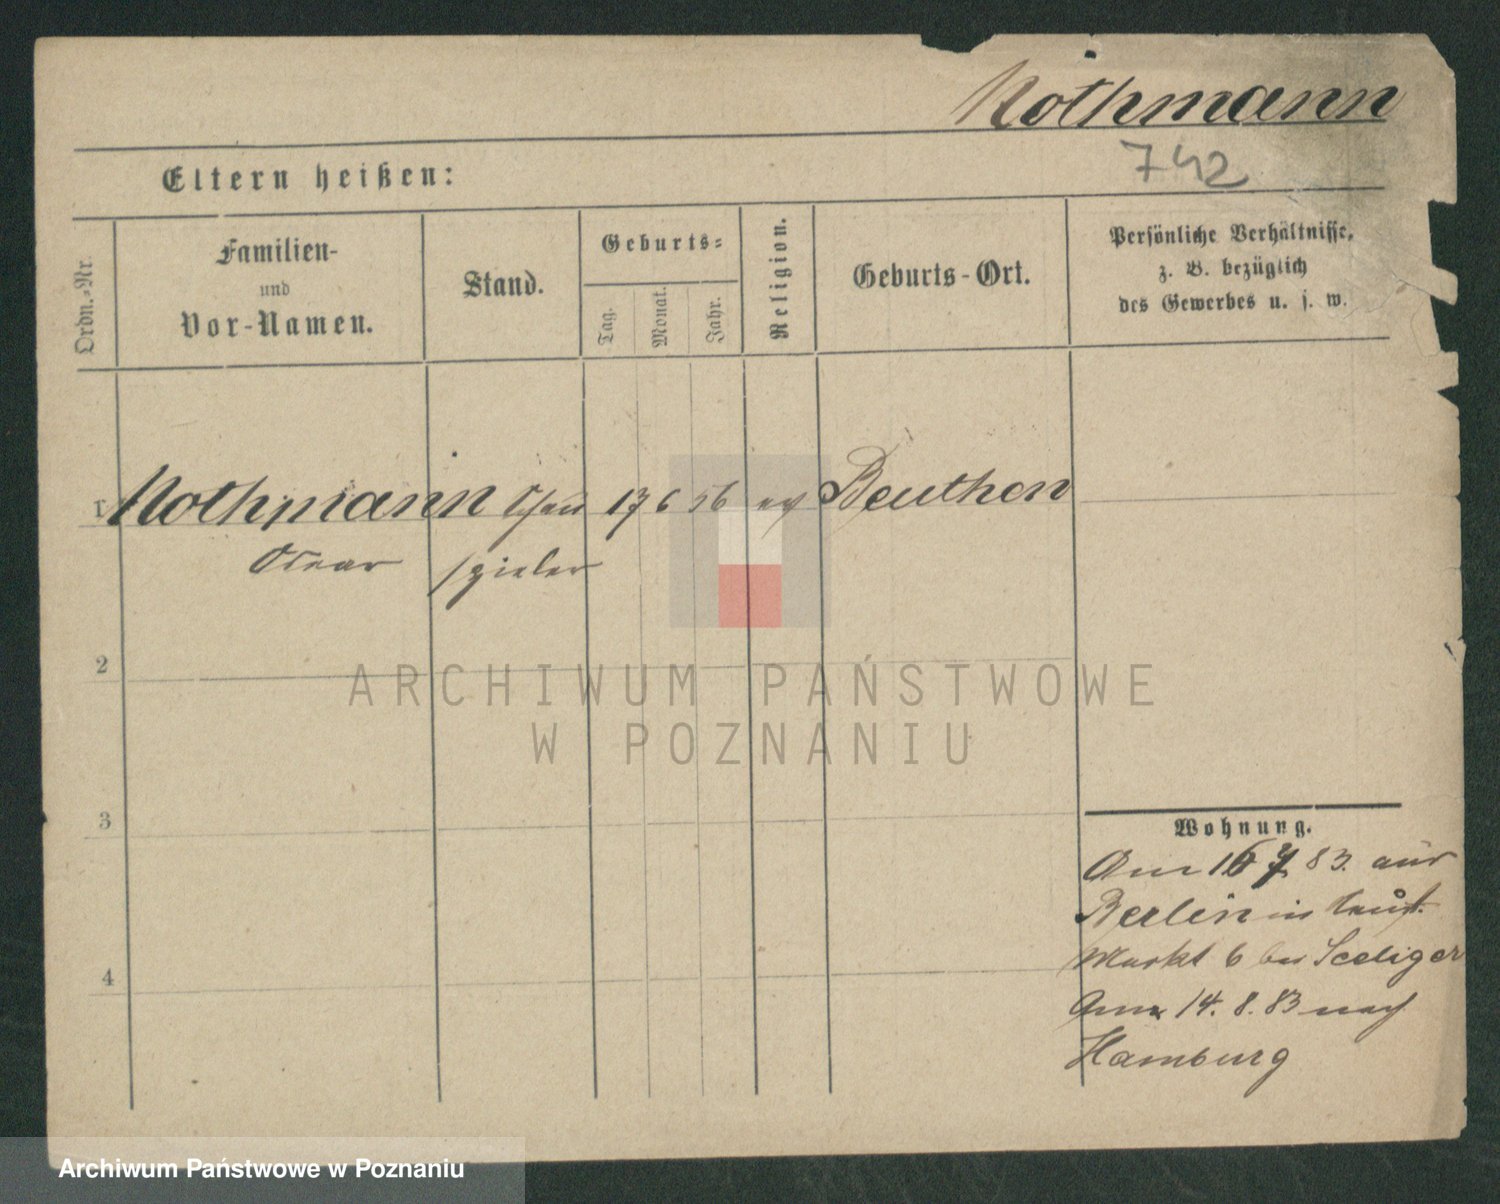 Nothmann
742
Eltern heißen:
Ordn.-Nr.
Familien-
und
Vor-Namen.
Stand.
Geburts-
Tag.
Monat.
Jahr.
Religion.
Geburts-Ort.
Persönliche Verhältnisse,
z. B. bezüglich
des Gewerbes u. s. w.
1 Nothmann Schau 17 6 56 Beuthen
Oscar spieler
2
3
4
Wohnung.
Am 16 7 83. aus
Berlin in
Markt 6 bei Seeliger
14. 8. 83 nach
Hamburg
ARCHIWUM PAŃSTWOWE
W POZNANIU
Archiwum Państwowe w Poznaniu